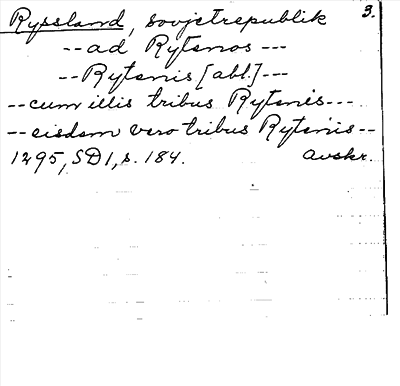 Ryssland, sovjetrepublik 3.
--ad Rytenos---
--Rytenis [abl.]---
--cum illis tribus Rytenis---
--eisdem vero tribus Rytenis--
1295, SD1, s. 184. Avskr.